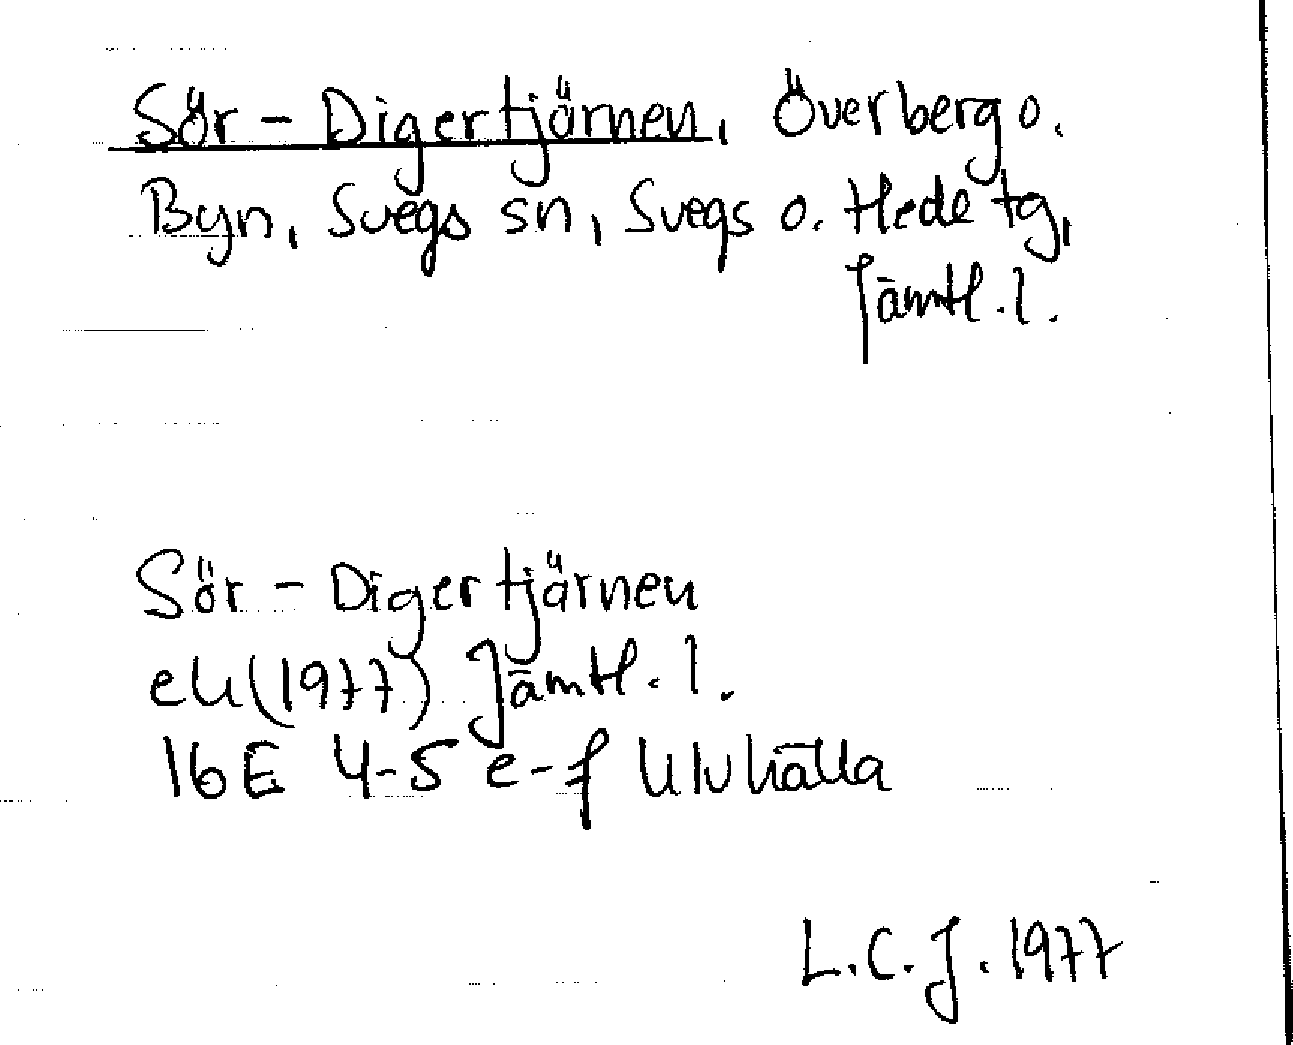 Sör-Digertjärnen, Överberg o.
Byn, Svegs sn, Svegs o. Hede tg,
Jämtl. l.
Sör-Digertjärnen
ek(1977) Jämtl. l.
16E 4-5 e-f Ulvkälla
L.C.J. 1977